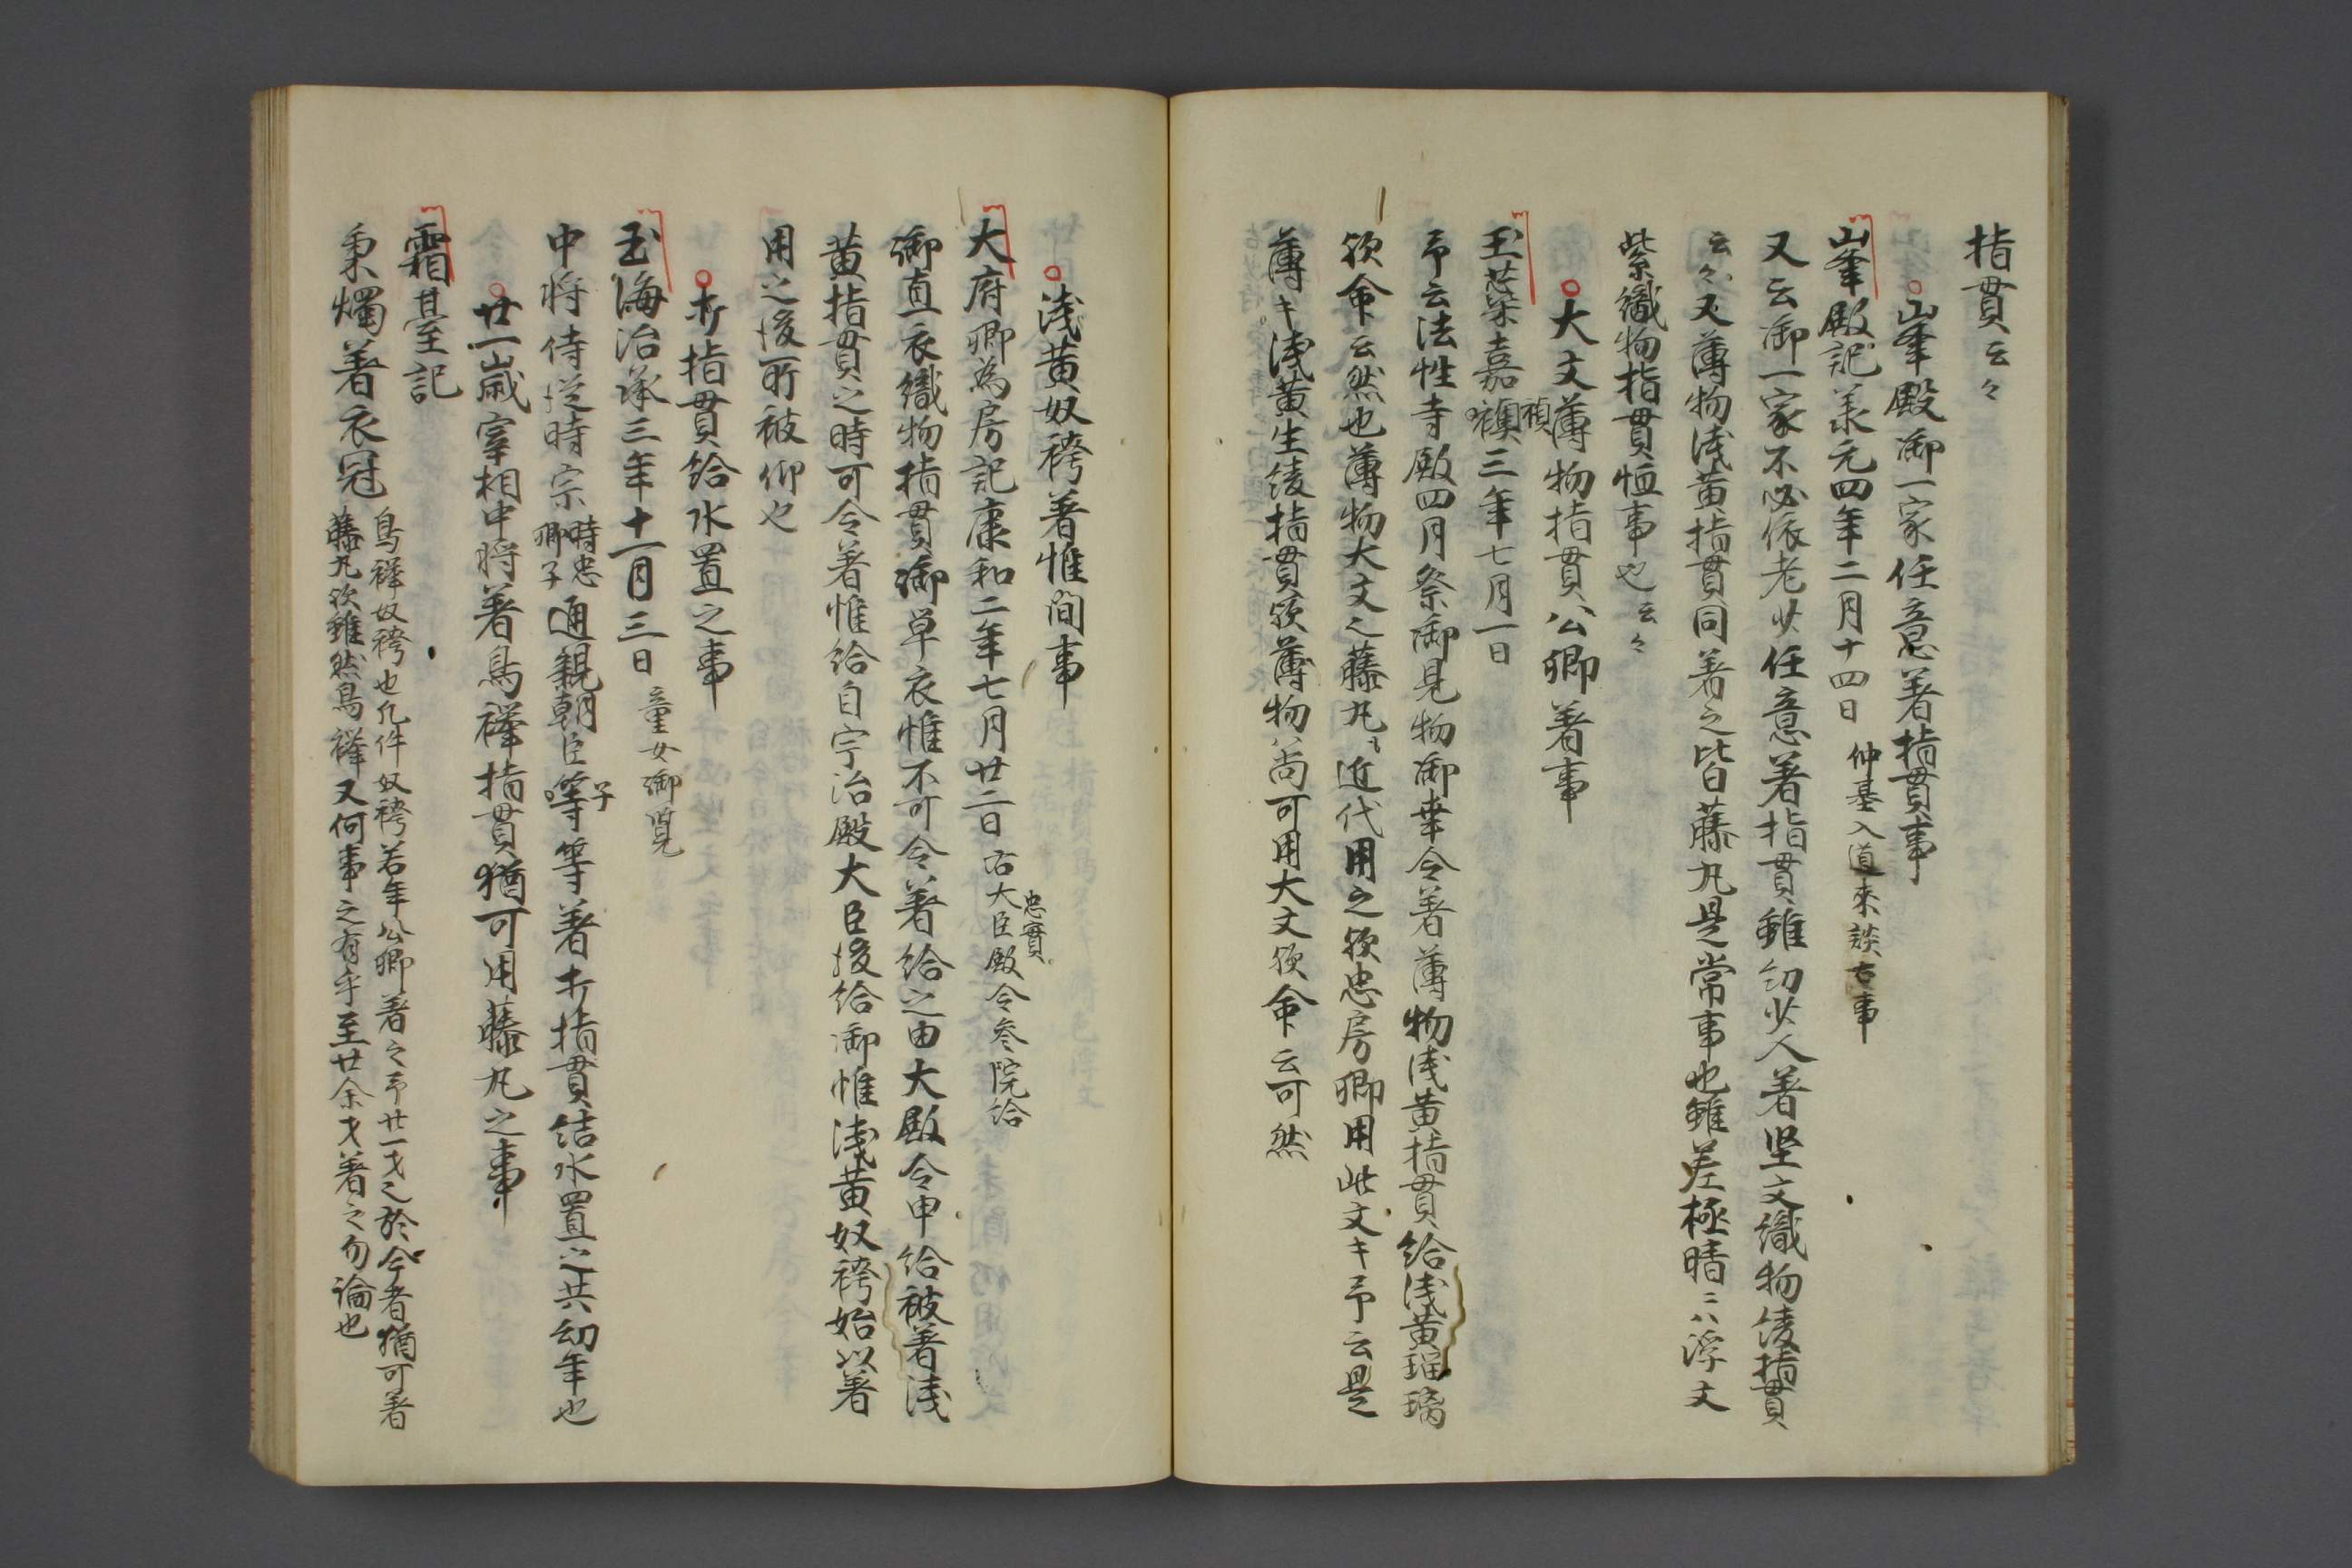 指貫云々
山峯殿御一家任意著指貫事
山峯殿記承元四年二月十四日 仲基入道来談古事
又云御一家不必依老少任意著指貫雖幼少人著堅文織物綾指貫
云々又薄物浅黄指貫同著之皆藤丸是常事也雖差極晴ニハ浮文
紫織物指貫恒事也云々
大文薄物指貫公卿著事
玉蘂嘉禎三年七月一日
予云法性寺殿四月祭御見物御幸令著薄物浅黄指貫給浅黄瑠璃
歟命云然也薄物大文之藤丸モ近代用之歟忠房卿用此文キ予云是
薄キ浅黄生綾指貫歟薄物ハ尚可用大文歟命云可然
浅黄奴袴著帷間事
大府卿為房記康和二年七月廿二日 右大臣殿忠實令参院給
御直衣織物指貫御単衣帷不可令著給之由大殿令申給被著浅
黄指貫之時可令著帷給自宇治殿大臣後給御帷浅黄奴袴始以著
用之後所被仰也
朽指貫給氷置之事
玉海治承三年十一月三日 童女御覧
中将侍従時宗時忠卿子通親朝臣子等著朽指貫結氷置之共幼年也
廿一歳宰相中将著鳥襷指貫猶可用藤丸之事
霜䑓記
秉燭著衣冠 鳥襷奴袴也凡件奴袴若年公卿著之予廿一才之於今者猶可著
藤丸歟雖然鳥襷又何事之有乎至廿余才著之勿論也